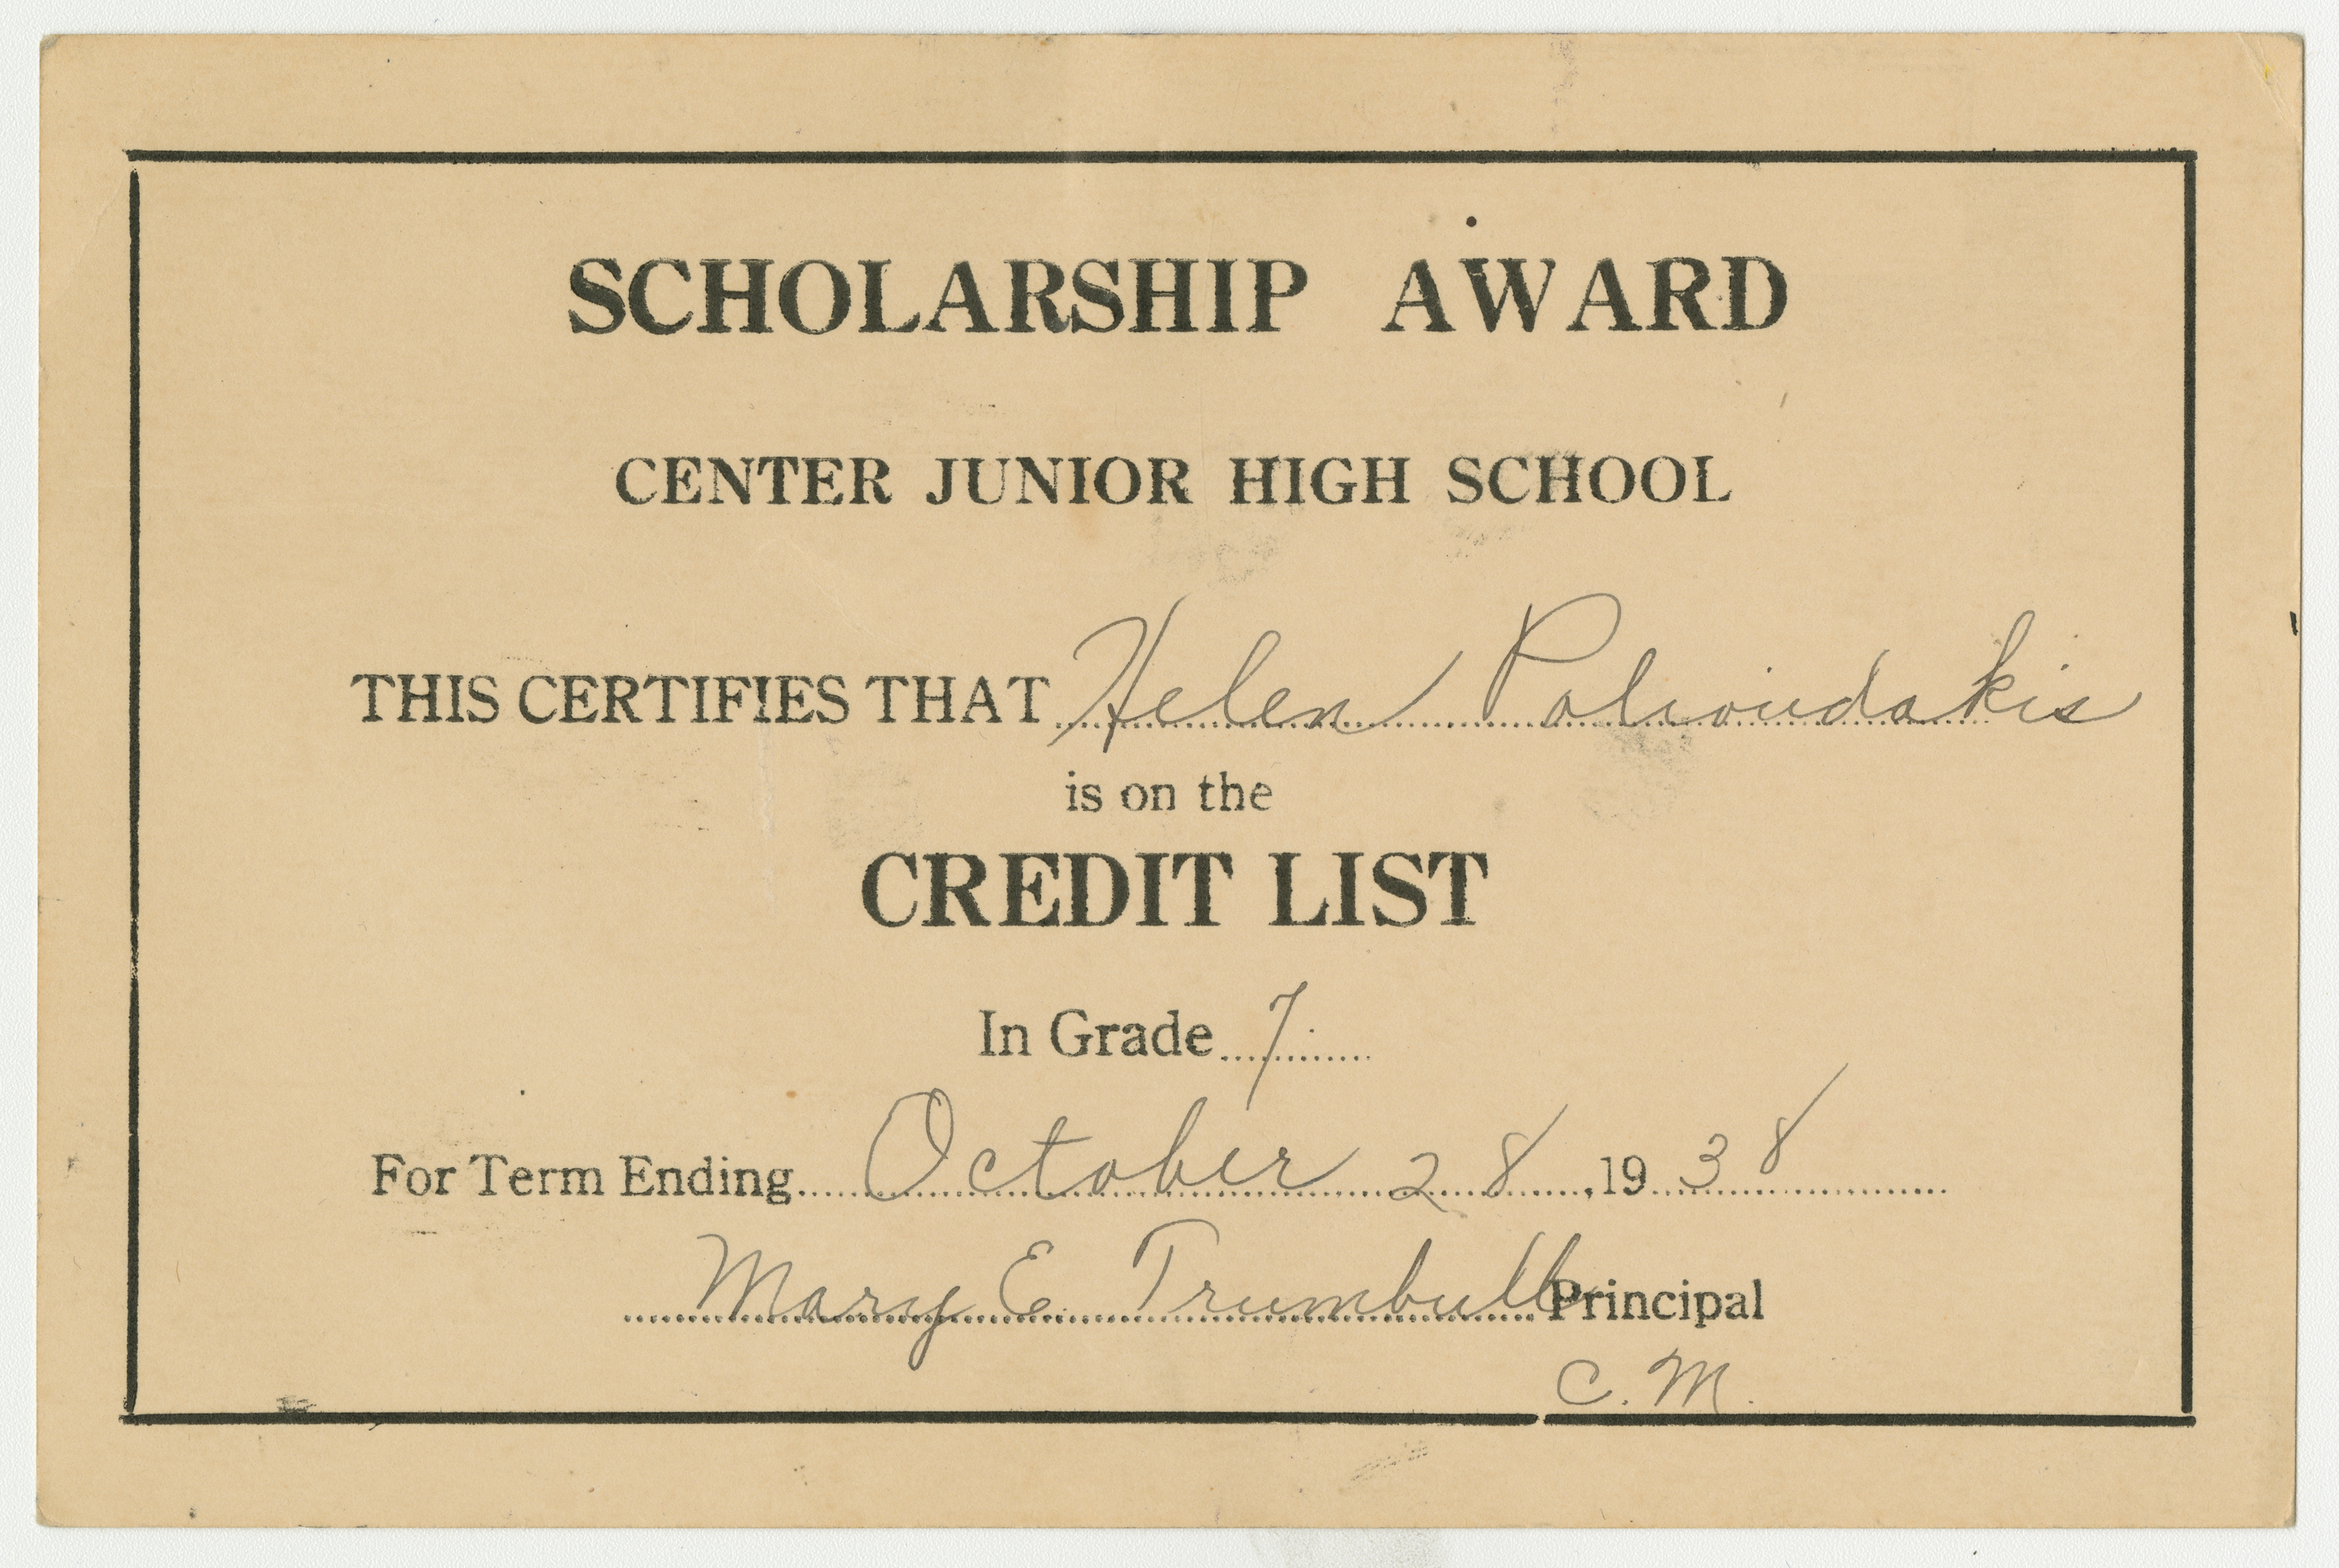 SCHOLARSHIP AWARD
CENTER JUNIOR HIGH SCHOOL
THIS CERTIFIES THAT Helen Polioudakis
is on the
CREDIT LIST
In Grade 7
For Term Ending October 28, 1938
Mary E. Trumbull Principal
C. M.